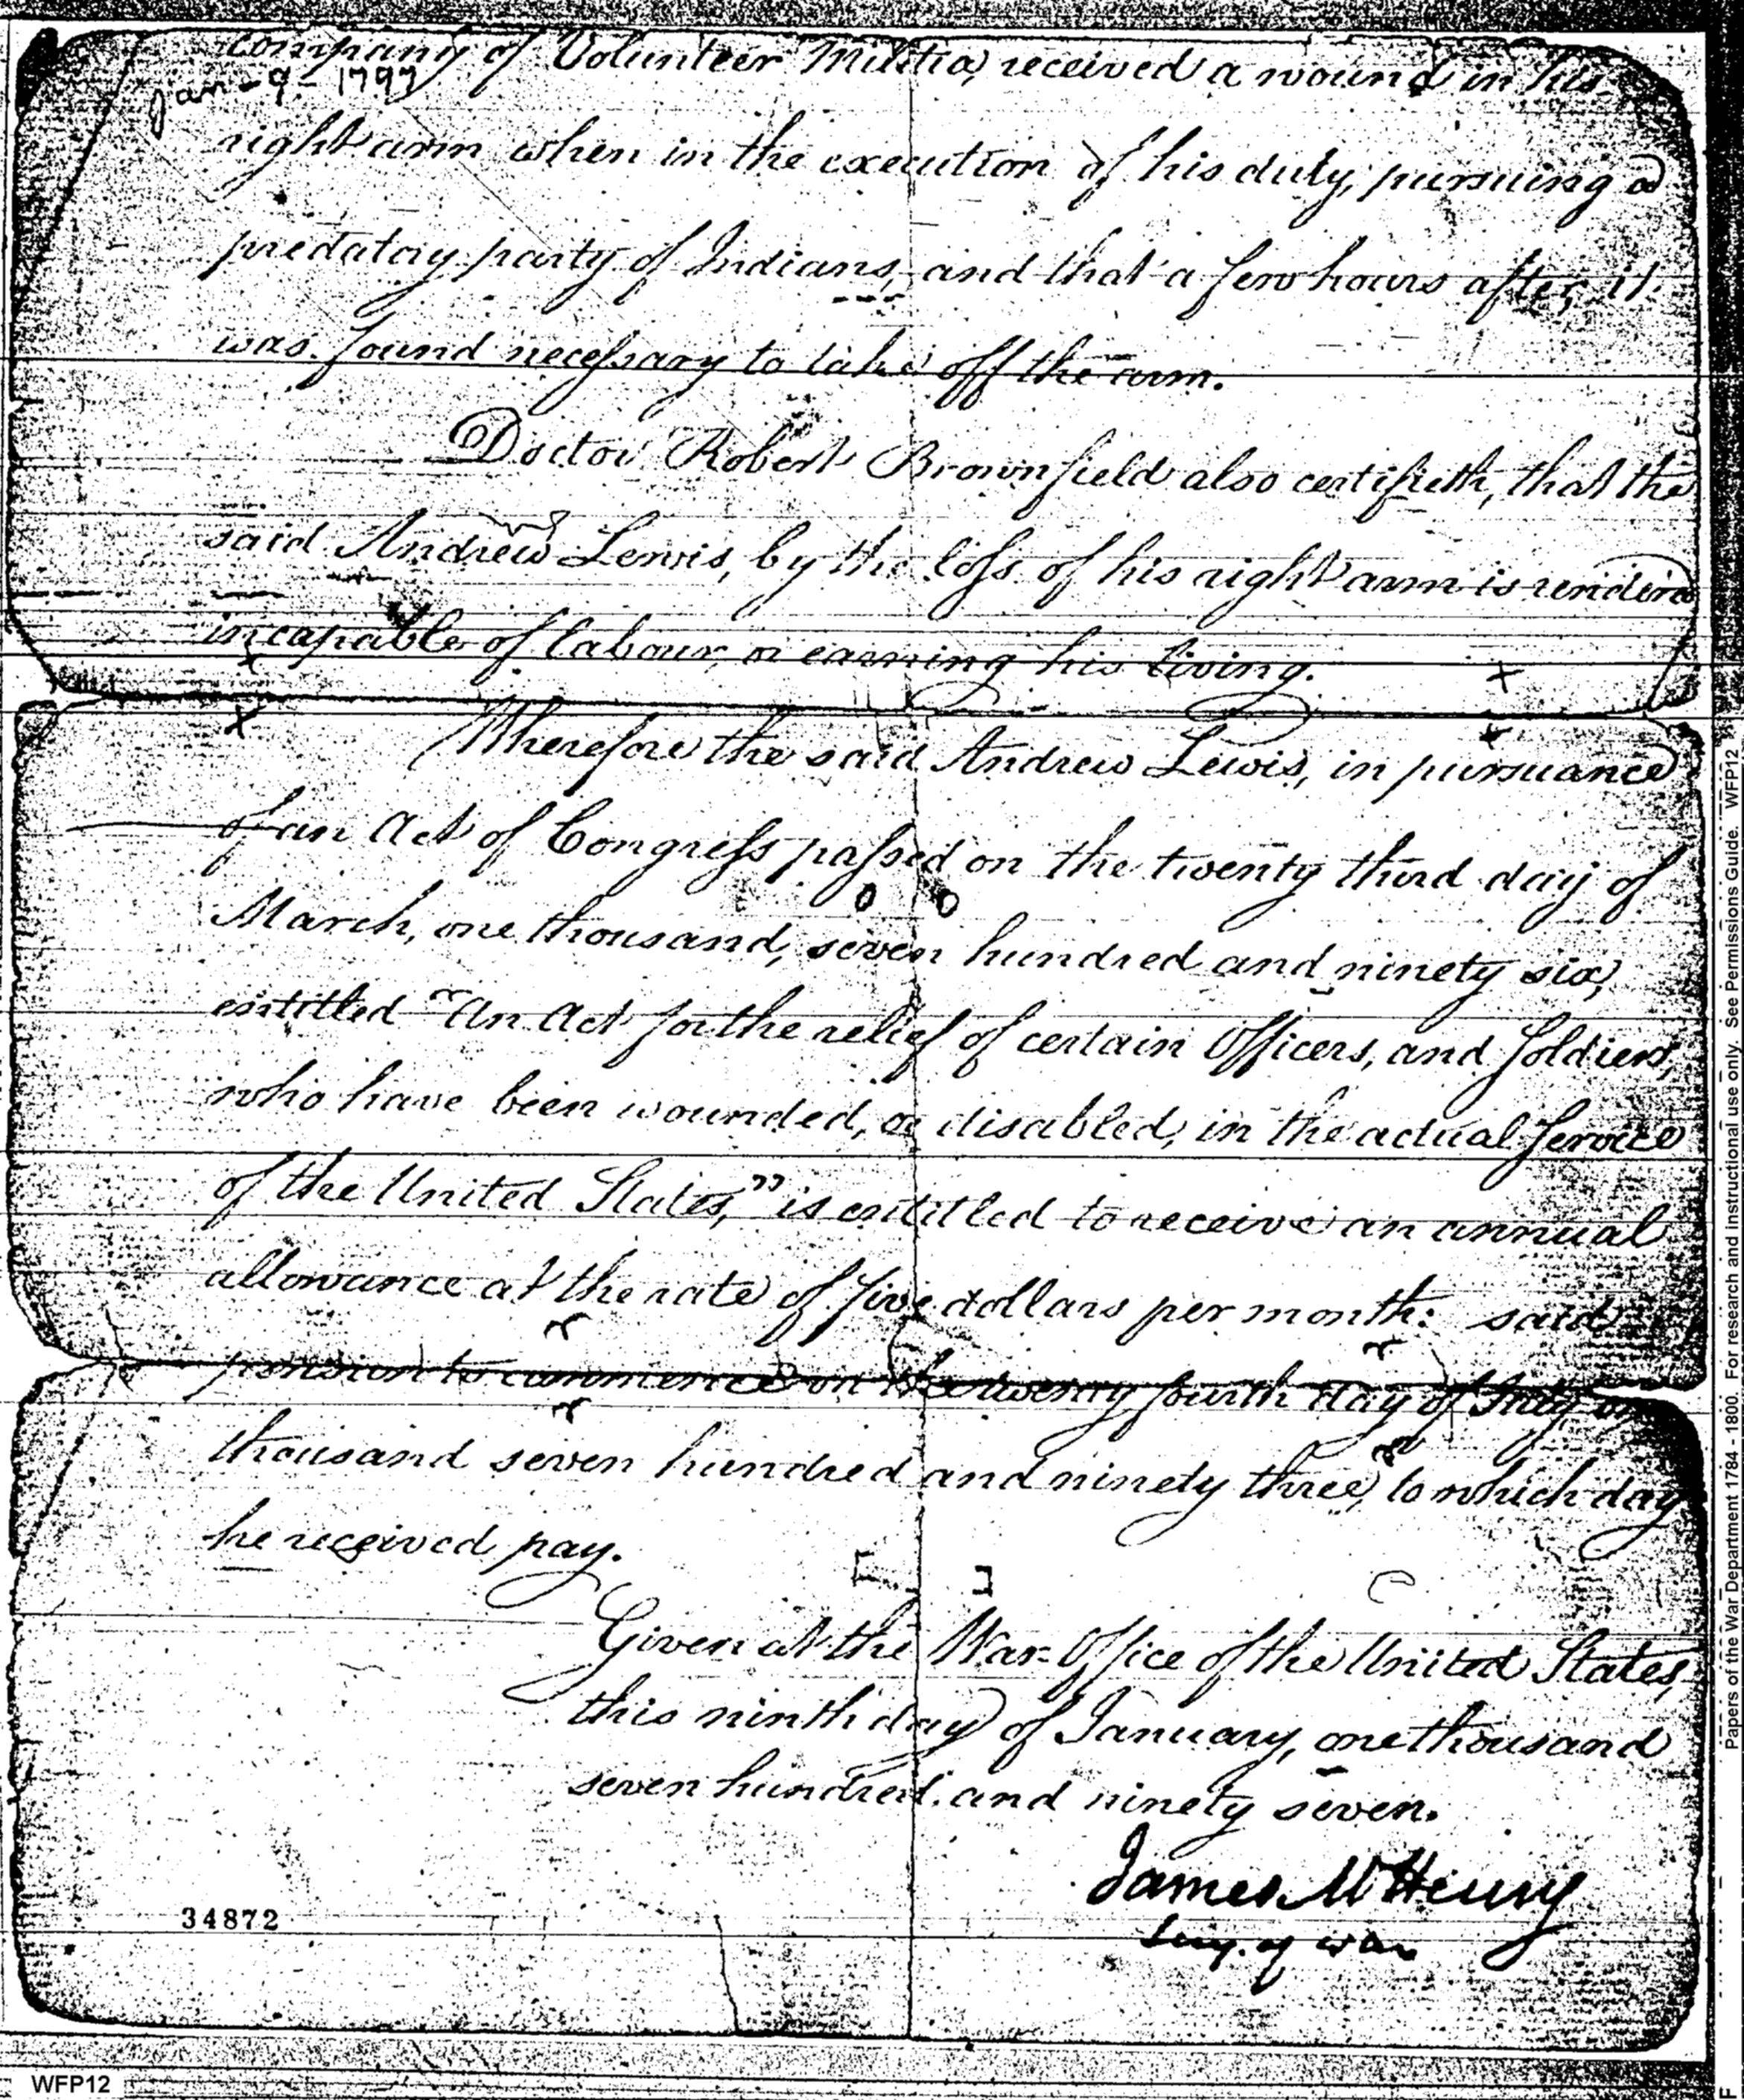 company of Volunteer Militia, received a wound in his
Jan - 9 - 1797
right arm when in the execution of his duty, pursuing a
predatory party of Indians, and that a few hours after, it
was found necessary to take off the arm.
Doctor Robert Brownfield also certifieth, that the
said Andrew Lewis, by the loss of his right arm is rendered
incapable of labour, or earning his living.
Wherefore the said Andrew Lewis, in pursuance
of an Act of Congress passed on the twenty third day of
March, one thousand, seven hundred and ninety six,
entitled "An Act for the relief of certain Officers, and Soldiers,
who have been wounded, or disabled, in the actual Service
of the United States," is entitled to receive an annual
allowance at the rate of five dollars per month: said
pension to commence on the twenty fourth day of July one
thousand seven hundred and ninety three, to which day
he received pay.
Given at the War-Office of the United States,
this ninth day of January, one thousand
seven hundred and ninety seven.
James McHenry
Secy. of war
34872
WFP12
Papers of the War Department 1784 - 1800. For research and Instructional use only. See Permissions Guide. WFP12
F